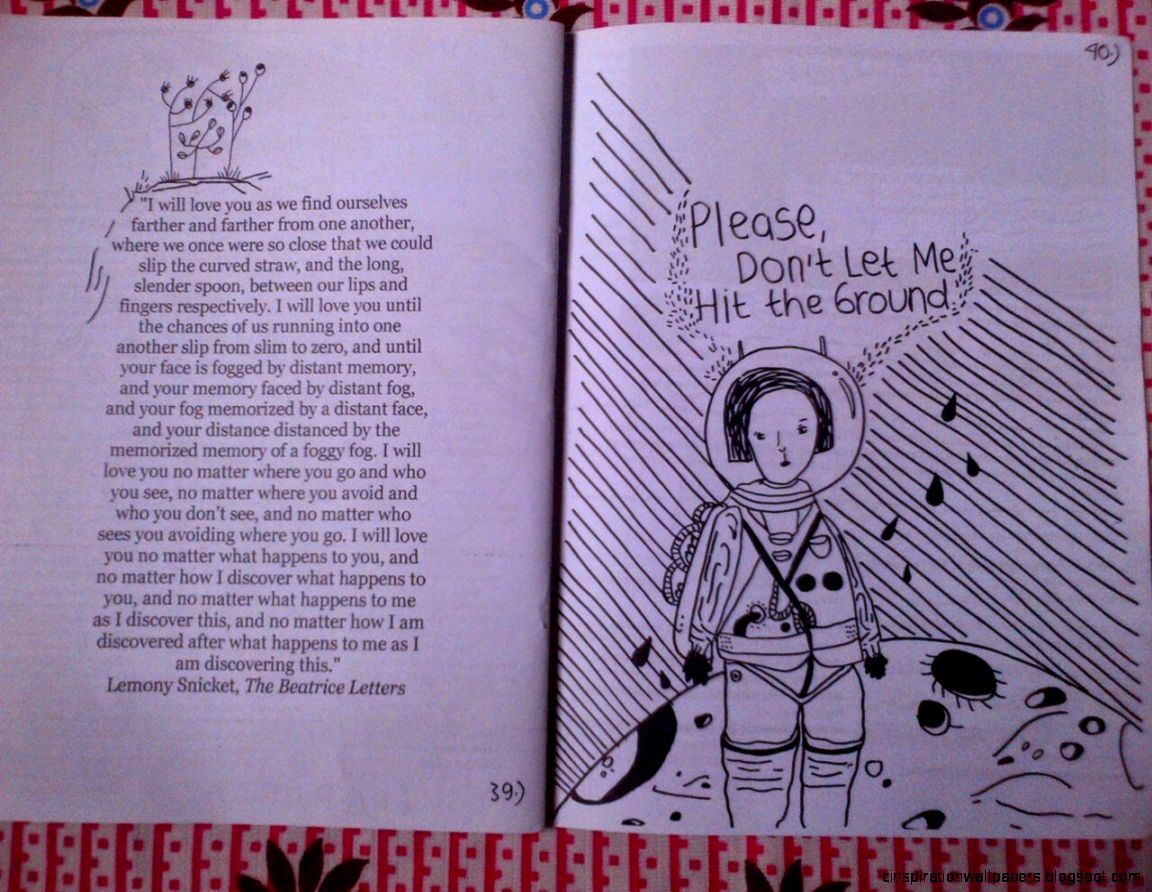 "I will love you as we find ourselves
farther and farther from one another,
where we once were so close that we could
slip the curved straw, and the long,
slender spoon, between our lips and
fingers respectively. I will love you until
the chances of us running into one
another slip from slim to zero, and until
your face is fogged by distant memory,
and your memory faced by distant fog,
and your fog memorized by a distant face,
and your distance distanced by the
memorized memory of a foggy fog. I will
love you no matter where you go and who
you see, no matter where you avoid and
who you don't see, and no matter who
sees you avoiding where you go. I will love
you no matter what happens to you, and
no matter how I discover what happens to
you, and no matter what happens to me
as I discover this, and no matter how I am
discovered after what happens to me as I
am discovering this."
Lemony Snicket, The Beatrice Letters
39.)
40.)
Please,
Don't Let Me
Hit the Ground.
cinspirationwallpapers.blogspot.com